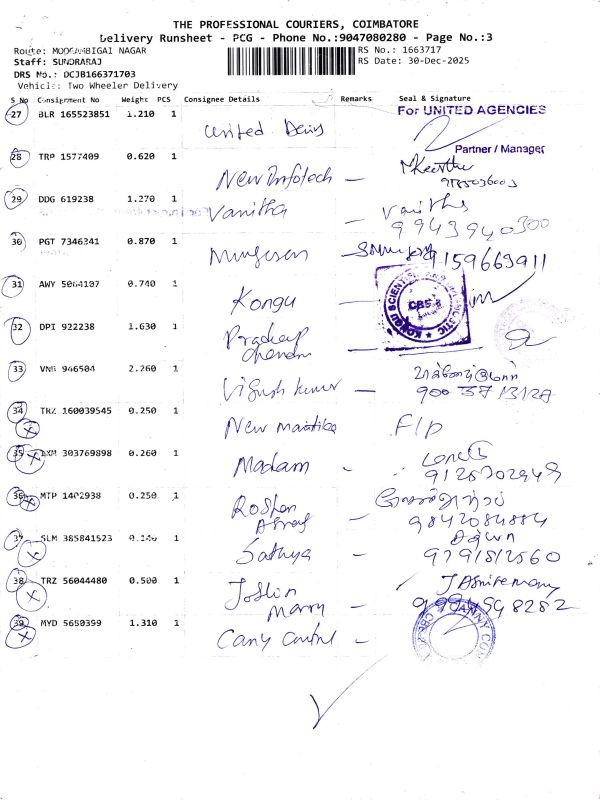 THE PROFESSIONAL COURIERS, COIMBATORE
Delivery Runsheet - PCG - Phone No.:9047080280 - Page No.:3
Route: MOOGAMBIGAI NAGAR RS No.: 1663717
Staff: SUNDRARAJ RS Date: 30-Dec-2025
DRS No.: DCJB166371703
Vehicle: Two Wheeler Delivery
S No Consignment No Weight PCS Consignee Details Remarks Seal & Signature
27 BLR 165523851 1.210 1 For UNITED AGENCIES
United
Partner / Manager
28 TRP 1577409 0.620 1
New Infotech —
29 DDG 619238 1.270 1
Vanitha — Vanitha
9943940300
30 PGT 7346341 0.870 1
Murugesan — 9159663911
31 AWY 5064107 0.740 1
Kongu
32 DPI 922238 1.630 1
Pradeep
Chandran
33 VNB 946504 2.260 1
Vignesh Kumar —
34 TRZ 160039545 0.250 1
New F/p
35 303769898 0.260 1
Madam
36 MTP 1402938 0.250 1
Roshan — 9842084884
37 SLM 385841523 1
Sathya — 9791512560
38 TRZ 56044480 0.500 1
Joslin
Marry —
39 MYD 5650399 1.310 1